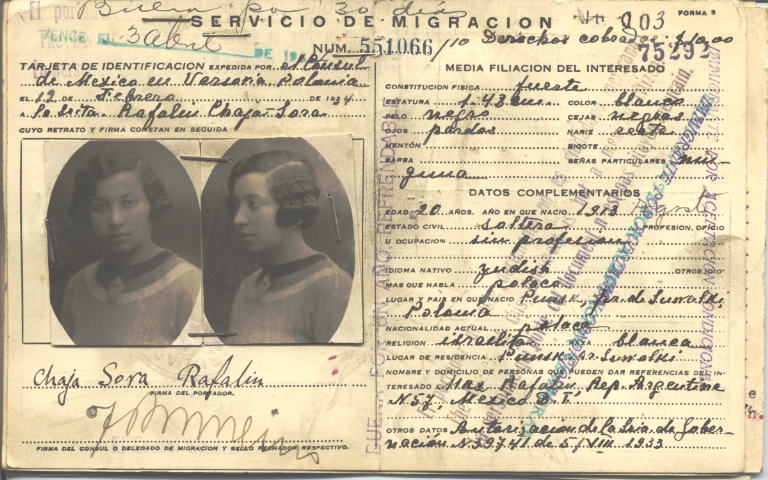 Buena por 30 dias
SERVICIO DE MIGRACION
FORMA 5
103
VENCE EL 3 Abril DE 19
NUM. 551066
/10 Derechos cobrados $10.00
75292
TARJETA DE IDENTIFICACION EXPEDIDA POR el Cónsul
de Mexico en Varsovia Polonia
EL 12 DE Febrero DE 1934
A la Srita. Rafalin Chaja-Sora
CUYO RETRATO Y FIRMA CONSTAN EN SEGUIDA
Chaja Sora Rafalin
FIRMA DEL PORTADOR.
FIRMA DEL CONSUL O DELEGADO DE MIGRACION Y SELLO FECHADOR RESPECTIVO.
MEDIA FILIACION DEL INTERESADO
CONSTITUCION FISICA fuerte
ESTATURA 1.48 cm. COLOR blanco
PELO negro CEJAS negras
OJOS pardos NARIZ recta
MENTÓN BIGOTE
BARBA SEÑAS PARTICULARES nin-
guna
DATOS COMPLEMENTARIOS
EDAD 20 AÑOS. AÑO EN QUE NACIO 1913
ESTADO CIVIL soltera PROFESION, OFICIO
U OCUPACION sin profesion
IDIOMA NATIVO yudish OTROS IDIO-
MAS QUE HABLA polaco
LUGAR Y PAIS EN QUE NACIO Punsk, pr. de Suwalki,
Polonia
NACIONALIDAD ACTUAL polaca
RELIGION israelita blanca
LUGAR DE RESIDENCIA Punsk pr. Suwalki
NOMBRE Y DOMICILIO DE PERSONAS QUE PUEDEN DAR REFERENCIAS DEL IN-
TERESADO Max Rafalin, Rep. Argentina
N 57, Mexico D. F.,
OTROS DATOS Autorización de la Sria. de Gober-
nación N 39741 de 5/VIII 1933
INMIGRANTE POR ACEPTACION CONDICIONAL